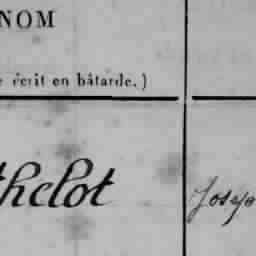 NOM
écrit en bâtarde.)
thelot Josep